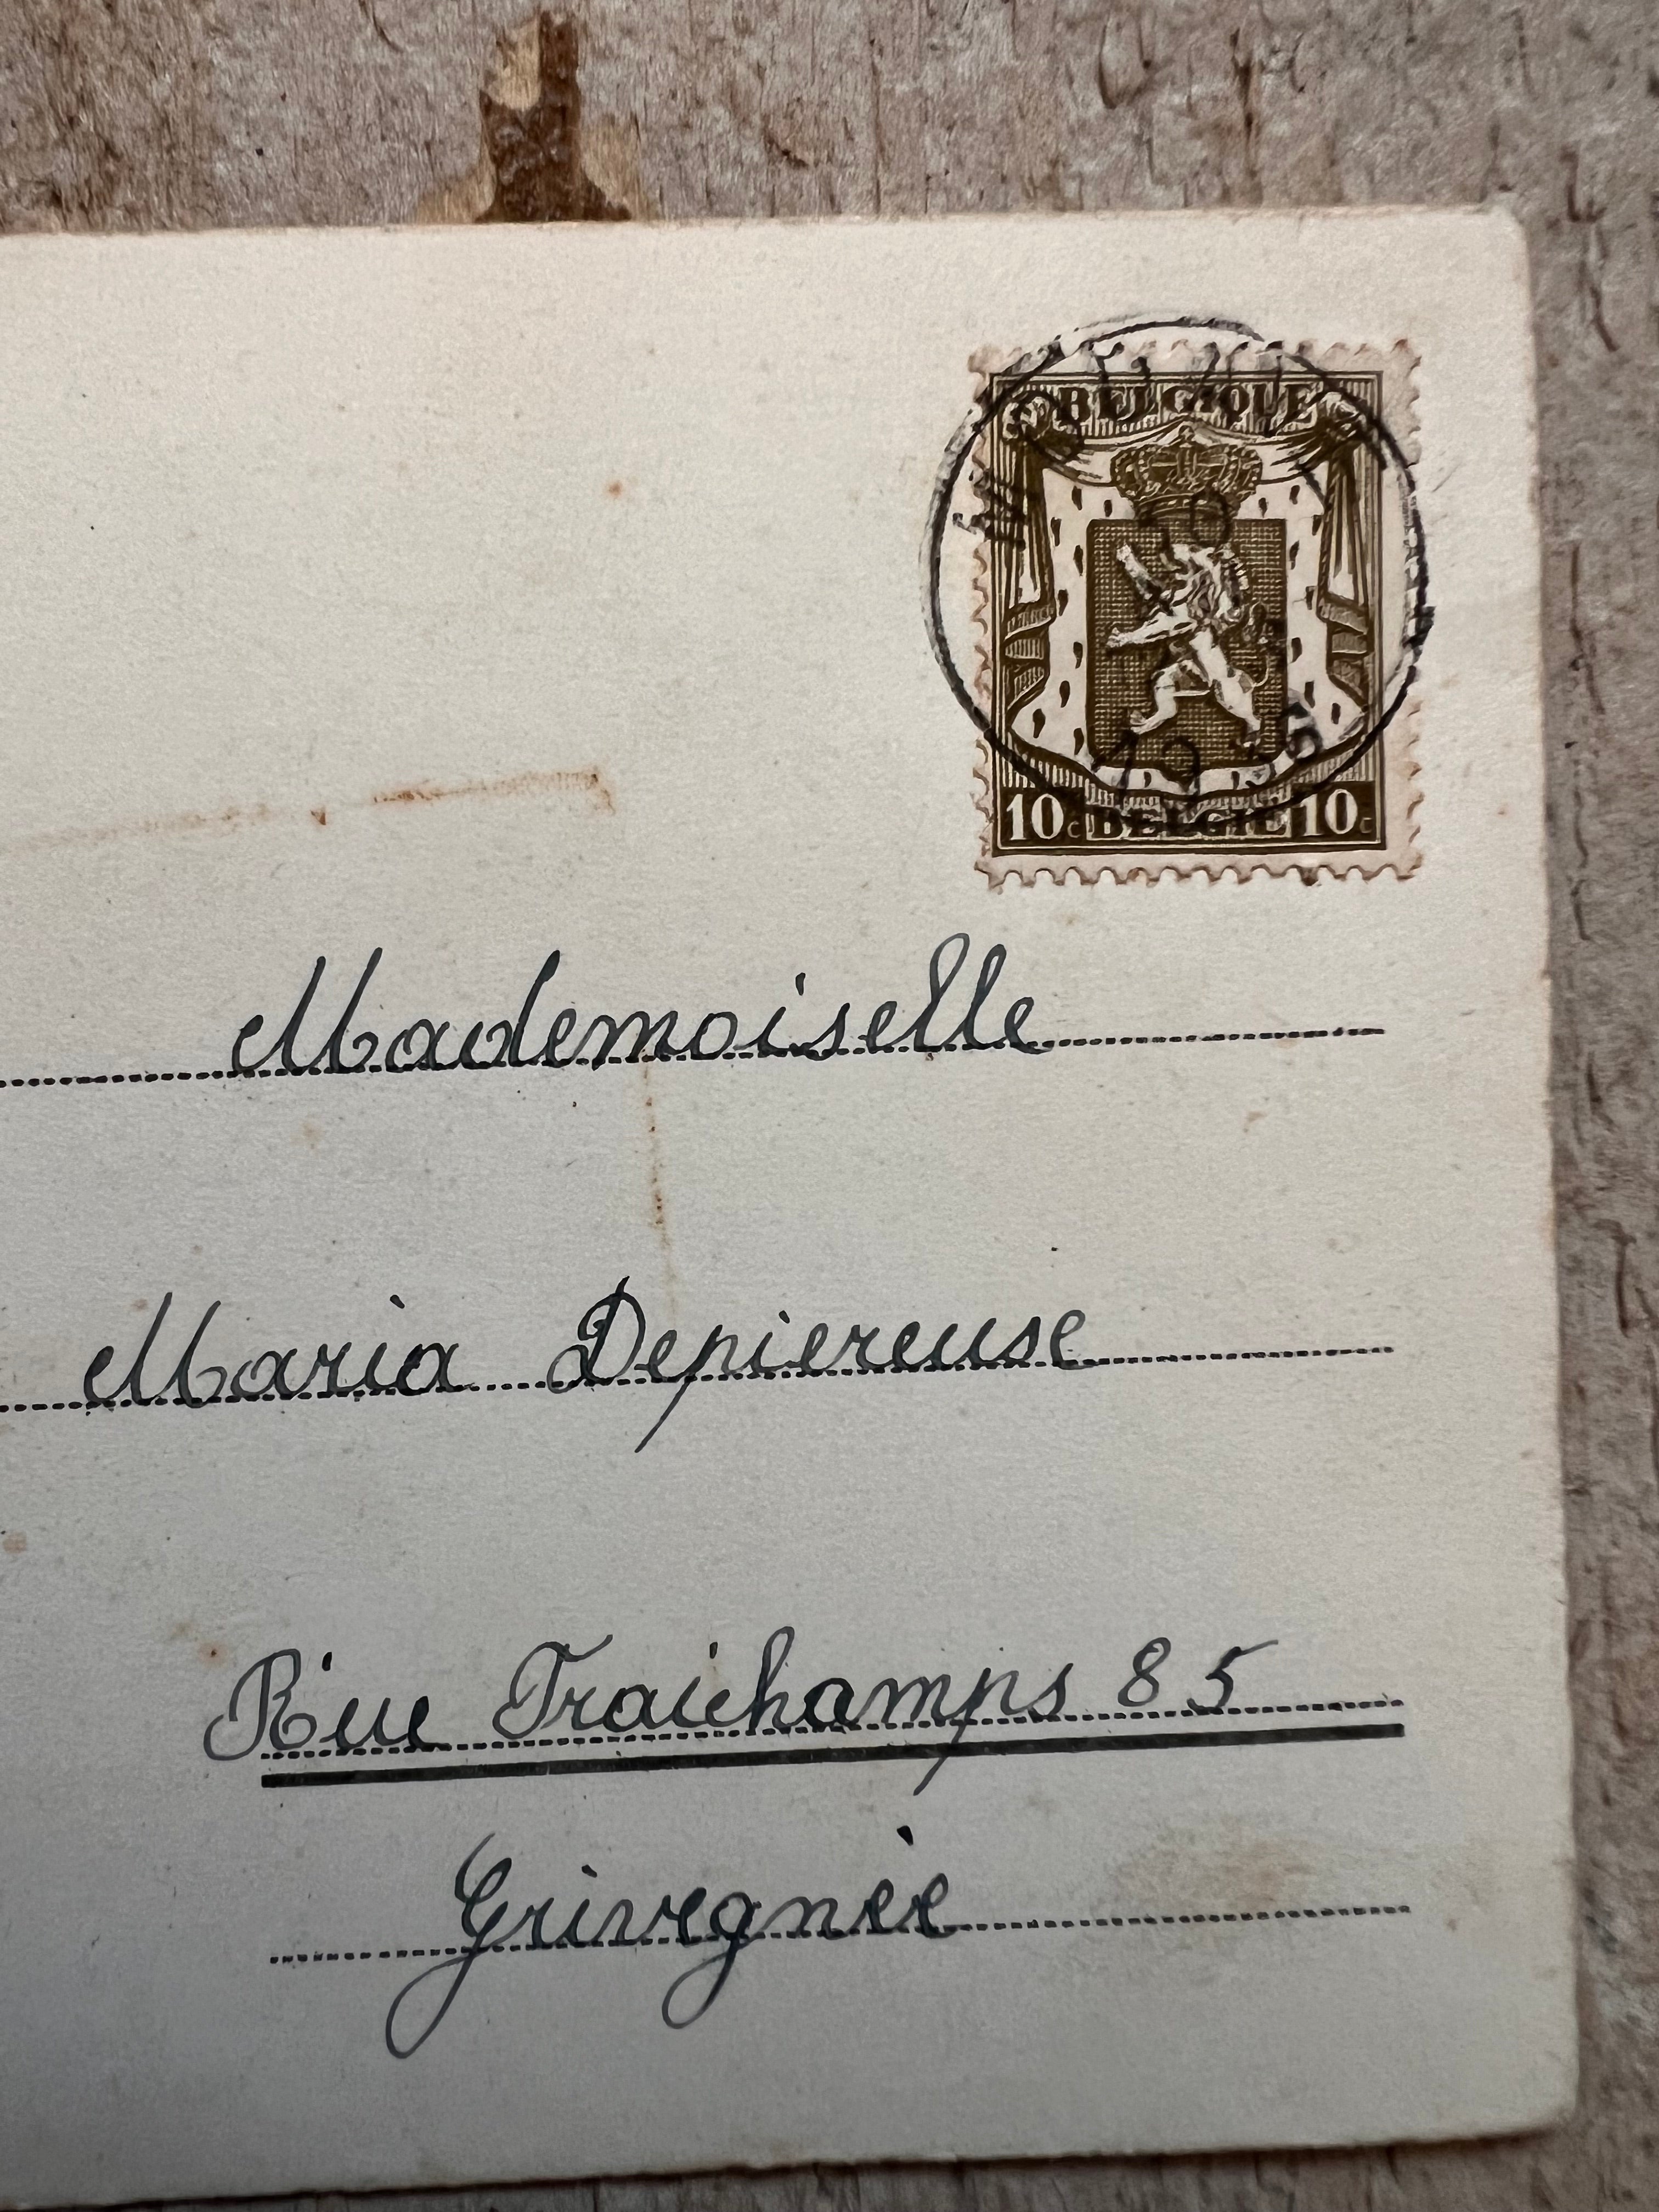 BELGIQUE
10c BELGIE 10c
Mademoiselle
Maria Depiereuse
Rue Fraichamps 85
Grivegnée